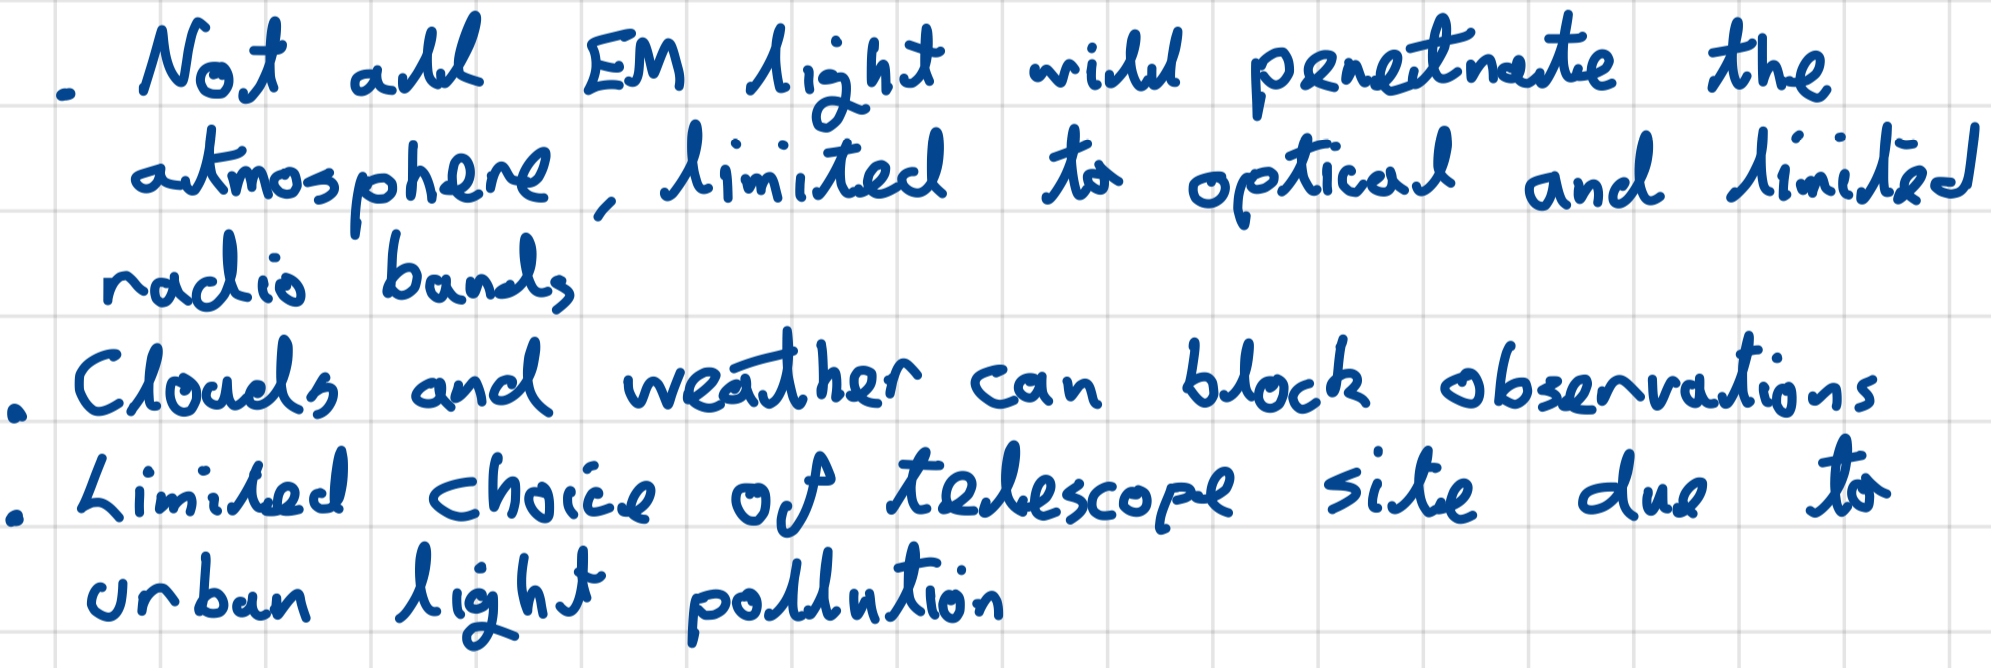 . Not all EM light will penetrate the
atmosphere, limited to optical and limited
radio bands
. Clouds and weather can block observations
. Limited choice of telescope site due to
urban light pollution